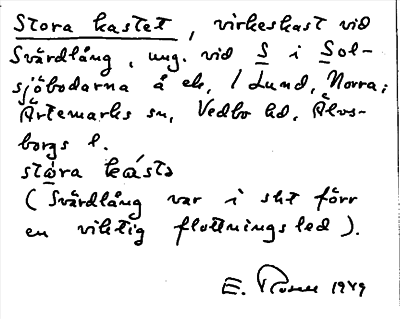 Stora kastet, virkeskast vid
Svärdlång, ung. vid S i Sol-
sjöbodarna å ek, / Lund, Norra;
Ärtemarks sn, Vedbo hd, Älvs-
borgs l.
stora kastə
(Svärdlång var i sht förr
en viktig flottningsled).
E. Rosell 1949